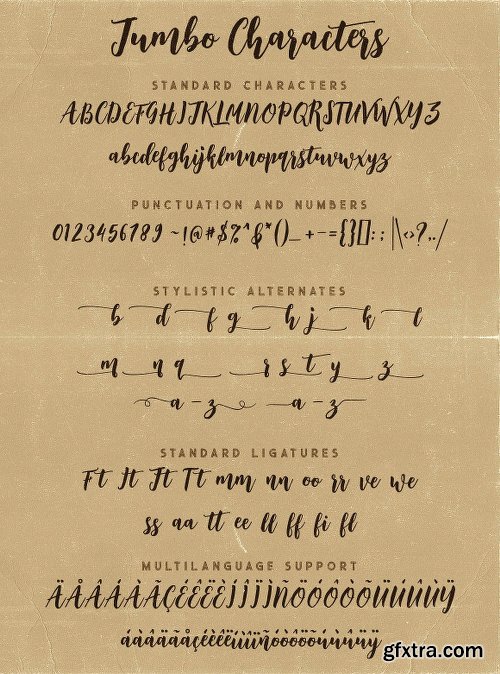 Jumbo Characters
STANDARD CHARACTERS
ABCDEFGHIJKLMNOPQRSTUVWXYZ
abcdefghijklmnopqrstuvwxyz
PUNCTUATION AND NUMBERS
0123456789 ~!@#$%^&*()_+-={}[]:;|\<>?,./
STYLISTIC ALTERNATES
b d f g h j k l
m n q r s t y z
a-z a-z
STANDARD LIGATURES
Ft It Jt Tt mm nn oo rr ve we
ss aa tt ee ll ff fi fl
MULTILANGUAGE SUPPORT
gfxtra.com